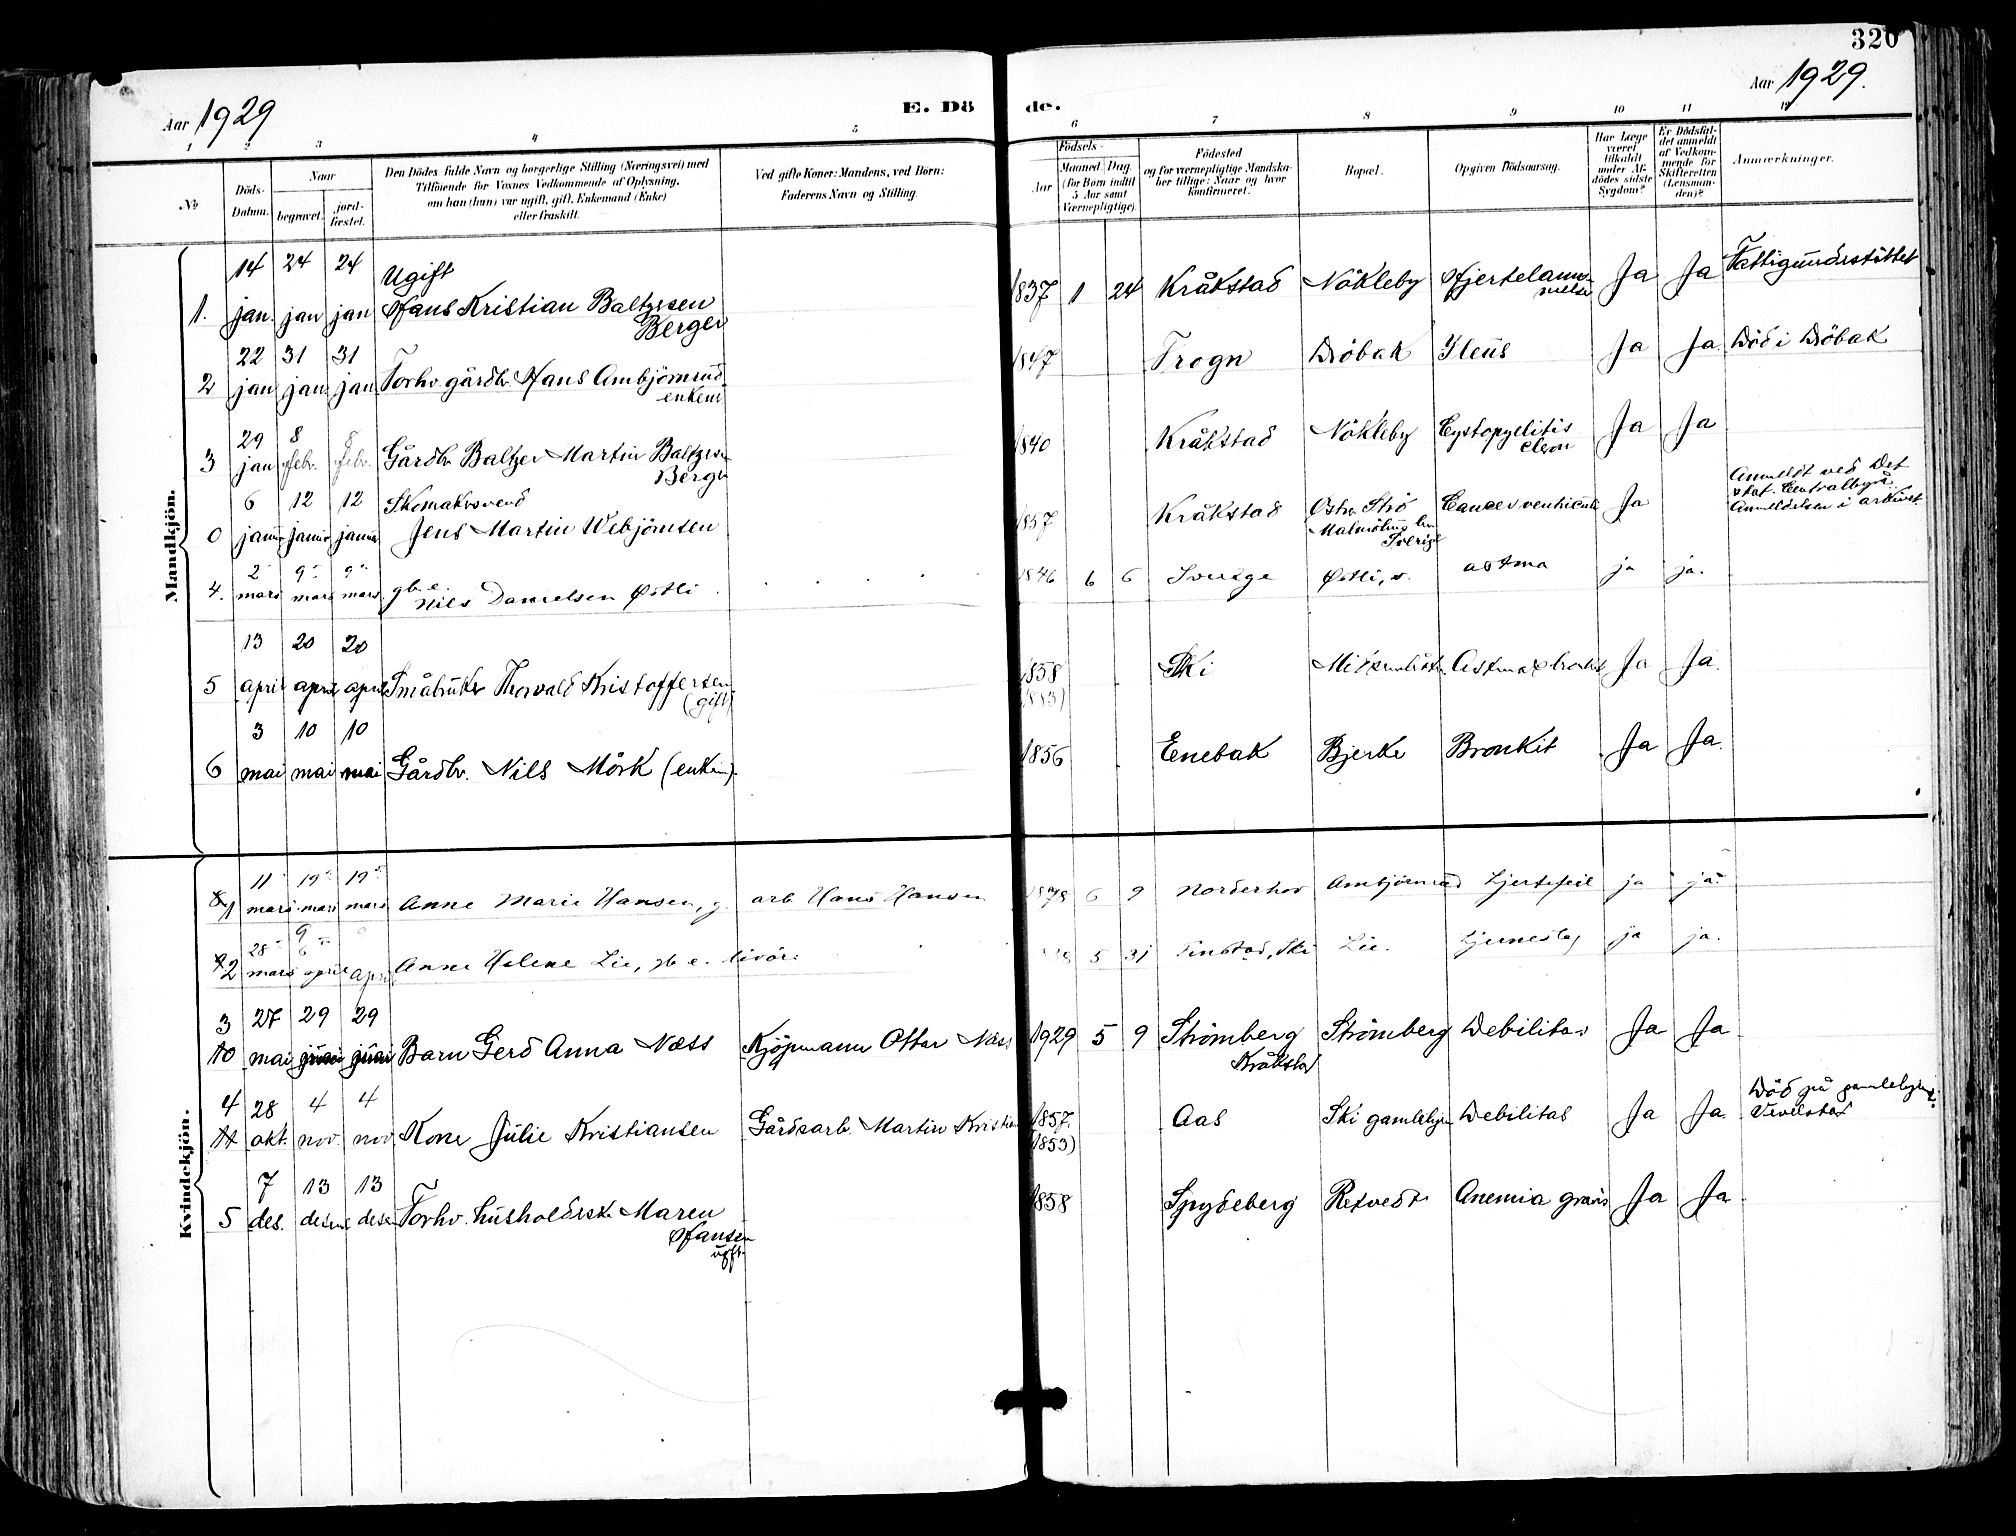 320
Aar 1929
E. Dö
de.
Aar 1929.
1 2 3 4 5 6 7 8 9 10 11 12
No
Döds-Datum.
Naar
begravet.
jord-fæstet.
Den Dödes fulde Navn og borgerlige Stilling (Næringsvei) med
Tilföiende for Voxnes Vedkommende af Oplysning,
om han (hun) var ugift, gift, Enkemand (Enke)
eller fraskilt.
Ved gifte Koner: Mandens, ved Börn:
Faderens Navn og Stilling.
Födsels-
Aar
Maaned Dag
(for Børn indtil
5 Aar samt
Værnepligtige).
Födested
og for værnepligtige Mandska-
ber tillige: Naar og hvor
konfirmeret.
Bopæl.
Opgiven Dödsaarsag.
Har Læge
været
tilkaldt
under Af-
dödes sidste
Sygdom?
Er Dödsfal-
det anmeldt
af Vedkom-
mende for
Skifteretten
(Lensman-
den)?
Anmærkninger.
Mandkjön.
14 24 24 Ugift
1. jan. jan jan Hans Kristian Baltzersen
Berger
1837 1 24 Kråkstad Nökleby Hjertelam-
melse Ja Ja Fattigunderstöttet
22 31 31
2 jan jan jan Forhv. gårdbr. Hans Ambjörnrud
enkem
1847 Frogn Dröbak Ileus Ja Ja. Död i Dröbak
29 8 8
3 jan febr. febr. Gårdbr. Baltzer Martin Baltzersen
Berger
1840 Kråkstad Nökleby Cystopyelitis
Ja Ja
6 12 12 Skomakersvend
0 januar januar januar Jens Martin Webjörnsen
1857 Kråkstad Östra Strö
Malmöhus len
Sverige
Cancer ventriculi Ja
Anmeldt ved Det
stat. Centralbyrå.
Anmeldelsen i arkivet.
2 9 9
4. mars mars mars gbr. e.
Nils Danielsen Østli
1846 6 6 Sverige Østli, astma ja ja.
13 20 20
5 april april april Småbruker Thorvald Kristoffersen
(gift)
1858
(1883)
Ski Astma & bronkit Ja Ja.
3 10 10
6 mai mai mai Gårdbr. Nils Mörk (enkem).
1856 Enebak Bjerke Bronkit Ja Ja.
Kvindekjön.
11 19 19
1 mars mars mars Anne Marie Hansen, g. arb. Hans Hansen
1878 6 9 Norderhov Ambjörnrud hjertefeil ja ja.
28 9
2 mars april april Anne Helene Lie, gbr. e. livöre
5 31 Finstad, Ski Lie. hjerneslag ja ja.
3 27 29 29
10 mai mai mai Barn Gerd Anna Næss Kjöpmann Ottar Næss
1929 5 9 Strömberg
Kråkstad
Strömberg Debilitas Ja Ja
4 28 4 4
11 okt. nov. nov Kone Julie Kristiansen Gårdsarb. Martin Kristian
1857.
(1853)
Aas Ski gamlehjem Debilitas Ja Ja
Död på gamlehjem
Vevelstad
7 13 13
5 des. desem desem Forhv. husholderske Maren
Hansen
ugift
1858 Spydeberg Retvedt Anemia gravis Ja Ja